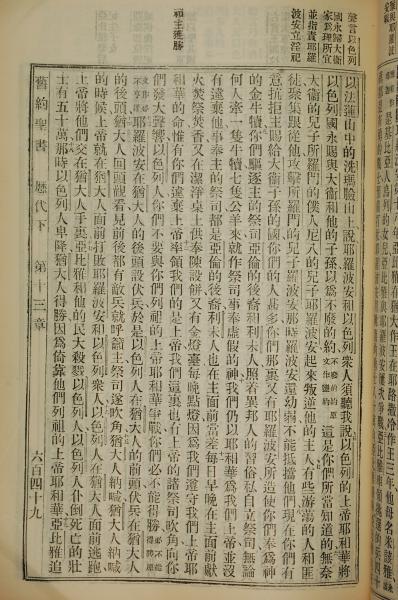 聲言以色列
國永歸大衞
家爲理所宜
並指責耶羅
波安立淫祀
以法蓮山中的洗瑪臉山上說耶羅波安和以色列衆人須聽我說以色列的上帝耶和華將
以色列國永賜與大衞和他的子孫以爲不廢的約這是你們所當知道的無奈
大衞的兒子所羅門的僕人尼八的兒子耶羅波安起來叛逆他的主人有些游蕩的人和匪
徒聚集跟從他攻擊所羅門的兒子羅波安那時羅波安還幼弱不能抵擋他們現在你們有
意抗拒主賜給大衞子孫的國你們的人甚多你們那裏又有耶羅波安所造使你們奉爲神
的金牛犢你們驅逐主的祭司亞倫的後裔和利未人照着異邦人的習俗私自立祭司無論
何人牽一隻牛犢七隻公羊來就作祭司奉事虛假的神我們仍以耶和華爲我們上帝並沒
有違棄他事奉主的祭司都是亞倫的後裔利未人也在主面前當差每日早晚在主面前獻
火焚祭焚香又在潔淨桌上供奉陳設餅又有金燈臺每晚點燈因爲我們遵守我們上帝耶
和華的命惟有你們違棄上帝率領我們的是上帝我們這裏也有上帝的諸祭司吹角向你
們發大聲響以色列人你們不要與你們列祖的上帝耶和華爭戰你們必不能得勝
耶羅波安在猶大人的後頭設伏兵於是以色列人在猶大人的前頭伏兵在猶大人
的後頭猶大人回頭觀看見前後都有敵兵就呼籲主祭司遂吹角猶大人吶喊猶大人吶喊
的時候上帝就在猶大人面前打敗耶羅波安和以色列衆人以色列人在猶大人面前逃跑
上帝將他們交在猶大人手裏亞比雅和他的民大殺戮以色列人以色列人仆倒死亡的壯
士有五十萬那時以色列人卑降猶大人得勝因爲倚靠他們列祖的上帝耶和華亞比雅追
祈主獲勝
舊約聖書 歷代下 第十三章 六百四十九